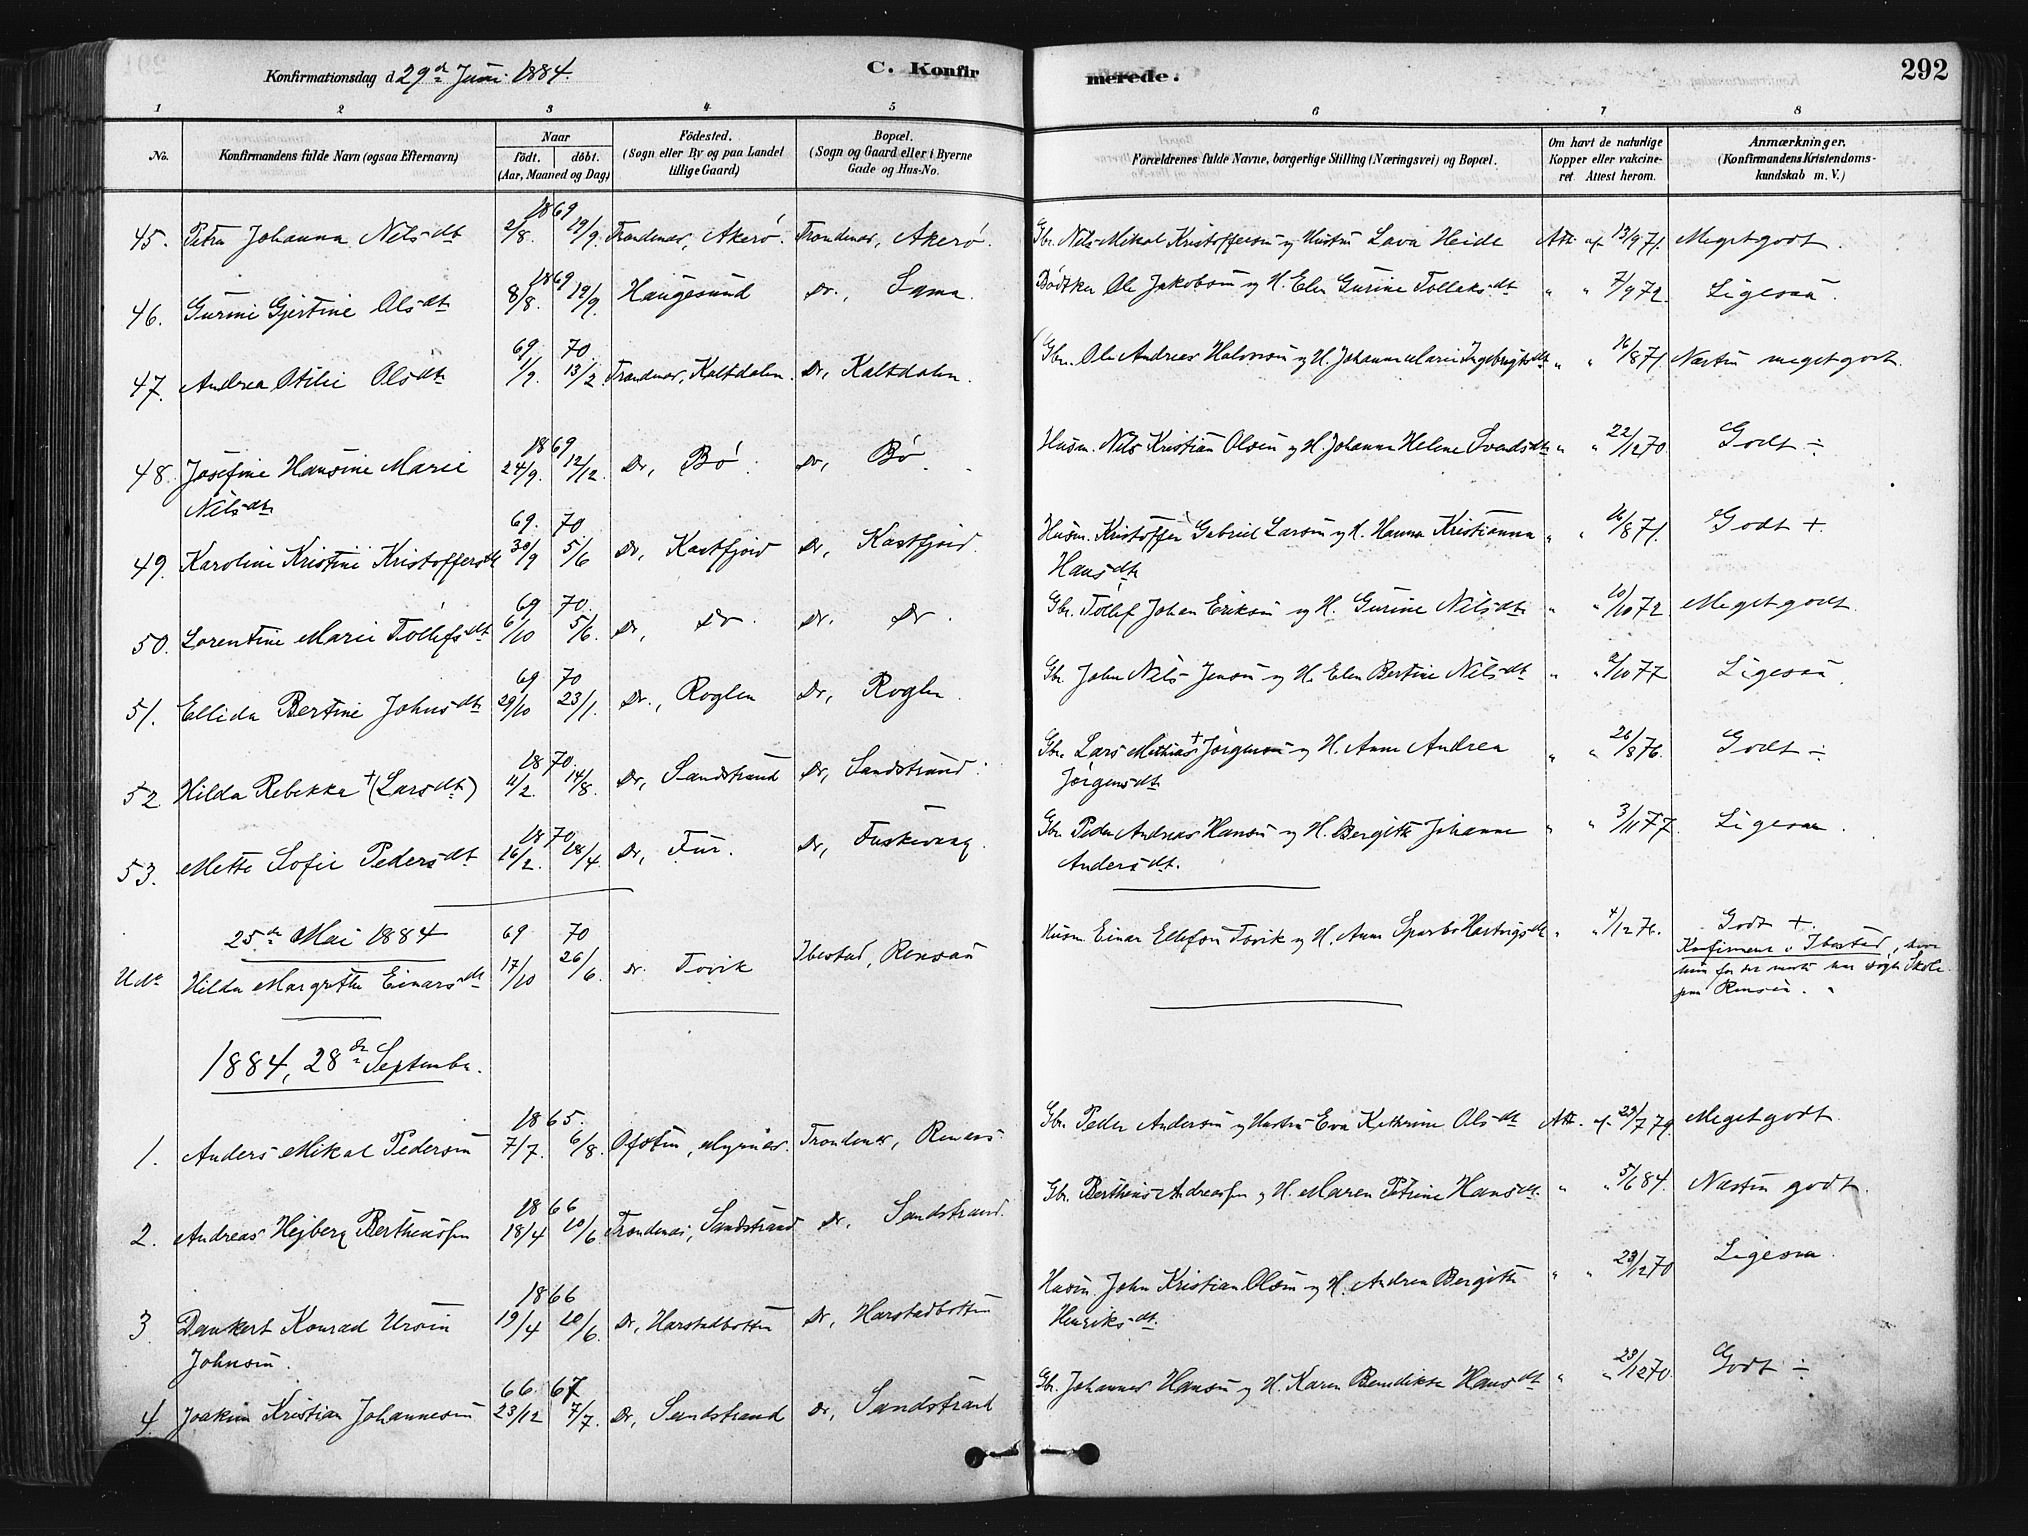 Konfirmationsdag d. 29de Juni 1884.
C. Konfir
merede.
292
1 2 3 4 5 6 7 8
No.
Konfirmandens fulde Navn (ogsaa Efternavn)
Naar
født. døbt.
(Aar, Maaned og Dag)
Födested.
(Sogn eller By og paa Landet
tillige Gaard)
Bopæl.
(Sogn og Gaard eller i Byerne
Gade og Hus-No.
Forældrenes fulde Navne, borgerlige Stilling (Næringsvei) og Bopæl.
Om havt de naturlige
Kopper eller vakcine-
ret. Attest herom.
Anmærkninger.
(Konfirmandens Kristendoms-
kundskab m. V.)
1869
45. Petra Johanna Nilsdt 2/8. 19/9. Trondenæs, Akerø. Trondenæs, Akerø. Gbr. Nils Mikal Kristoffersen og Hustru Lava Heide Att. af 13/9 71. Meget godt.
1869
46. Gurine Gjertine Olsdt 8/8. 19/9. Haugesund Do., Sama. Bødtker Ole Jakobsen og H. Elen Gurine Tollaksdt " " 7/9 72. Ligesaa.
69 70
47. Andrea Otilie Olsdt 1/9. 13/2 Trondenæs, Kaltdalen. Do, Kaltdalen. Gbr. Ole Andreas Halvorsen og H. Johanna Marie Ingebrigtsdt " " 16/8 71. Næsten meget godt.
1869
48. Josefine Hansine Marie 24/9. 12/12. Do, Bø. Do, Bø. Husm. Nils Kristian Olsen og H. Johanna Helene Svendsdt " " 22/12 70. Godt ÷
Nilsdt
69. 70
49. Karoline Kristine Kristoffersdt 30/9 5/6 Do, Kastfjord Do, Kastfjord. Husm. Kristoffer Gabriel Larsen og H. Hanna Kristianna " " 16/8 71. Godt +
Hansdt
69 70.
50. Lorentine Marie Tollefsdt 6/10 5/6. Do, Do. Do. Do. Gbr. Tollef Johan Eriksen og H. Gurine Nilsdt " " 10/10 72. Meget godt.
69 70
51. Ellida Bertine Johnsdt 29/10 23/1. Do., Roglen Do, Roglen. Gbr. John Nils Jensen og H. Elen Bertine Nilsdt " " 2/10 77 Ligesaa
1870.
52 Hilda Rebekka + (Larsdt) 11/2. 14/8. Do, Sandstrand Do, Sandstrand. Gbr. Lars Mathias + Jørgensen og H. Anne Andrea " " 26/8 76. Godt ÷
Jørgensdt
1870
53. Mette Sofie Pedersdt 16/2. 18/4. Do, Fur. Do, Fuskevaag. Gbr. Peder Andreas Hansen og H. Bergitte Johanne " " 3/11 77. Ligesaa.
Andersdt.
25de Mai 1884 69 70
Ude Hilda Margrethe Einarsdt 17/10 26/6. Do. Tovik Ibestad, Rensaa Husm. Einar Ellefsen Tovik og H. Anne Sparbo Hartvigsdt " " 4/12 76. Godt +.
Konfirmeret i Ibestad, hvor
hun for det meste har søgt Skole
paa Rensaa.
1884, 28de September.
1865.
1. Anders Mikal Pedersen 7/7. 6/8. Ofoten, Trondenæs, Renaas. Gbr. Peder Andersen og Hustru Eva Kathrine Olsdt Att. af 23/7 79. Meget godt.
1866
2. Andreas Hejberg Bertheussen 18/4 10/6. Trondenæs, Sandstrand Do. Sandstrand. Gbr. Bertheus Andreassen og H. Maren Petrine Hansdt. " " 5/6 84. Næsten godt.
1866
3. Dankert Konrad Ursin 19/4 10/6. Do, Harstadbotten Do, Harstadbotten Husm. John Kristian Olsen og H. Andrea Bergitte " " 23/12 70 Ligesaa.
Johnsen. Henriksdt.
66. 67
4. Joakim Kristian Johannesen 23/12 7/7. Do, Sandstrand Do, Sandstrand Gbr. Johannes Hansen og H. Karen Benedikte Hansdt " " 23/12 70. Godt ÷